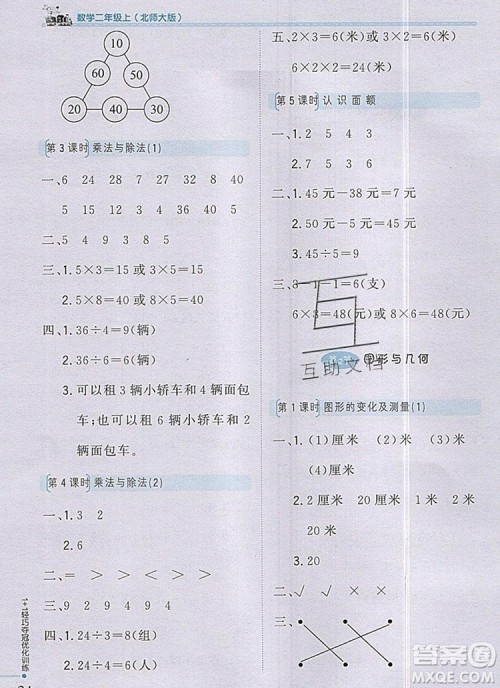 数学二年级上(北师大版)
10
60 50
20 40 30
第3课时 乘法与除法(1)
一、6 24 28 7 32 8 40
5 15 12 35 24 8 5
二、5 40
三、1.5×3=15 或 3×5=15
2.8×5=40 或 5×8=40
四、1.36÷4=9(辆)
2.36÷6=6(辆)
3.可以租 3 辆小轿车和 4 辆面包
车;也可以租 6 辆小轿车和 2
辆面包车。
第4课时 乘法与除法(2)
一、1.3 2
2.6
二、= > > < > >
三、9 2 9 4 9 8
四、1.24÷3=8(组)
2.24÷4=6(人)
1+1轻巧夺冠优化训练
五、2×3=6(米)或 3×2=6(米)
6×2×2=24(米)
第5课时 认识面额
一、1.2 5 4 3
2.7 5 4
二、1.45元-38元=7元
2.50元-45元=5元
3.45÷5=9
三、
6×8=48(元)或 8×6=48(元)
图形与几何
互
互助文档
第1课时 图形的变化及测量(1)
一、1.(1)厘米 (2)米 (3)米
(4)厘米 (5)厘米
2.2厘米 20厘米 1米
20米
3.20
二、✓ × ✓ × ×
三、
答案圈
MXQE.COM